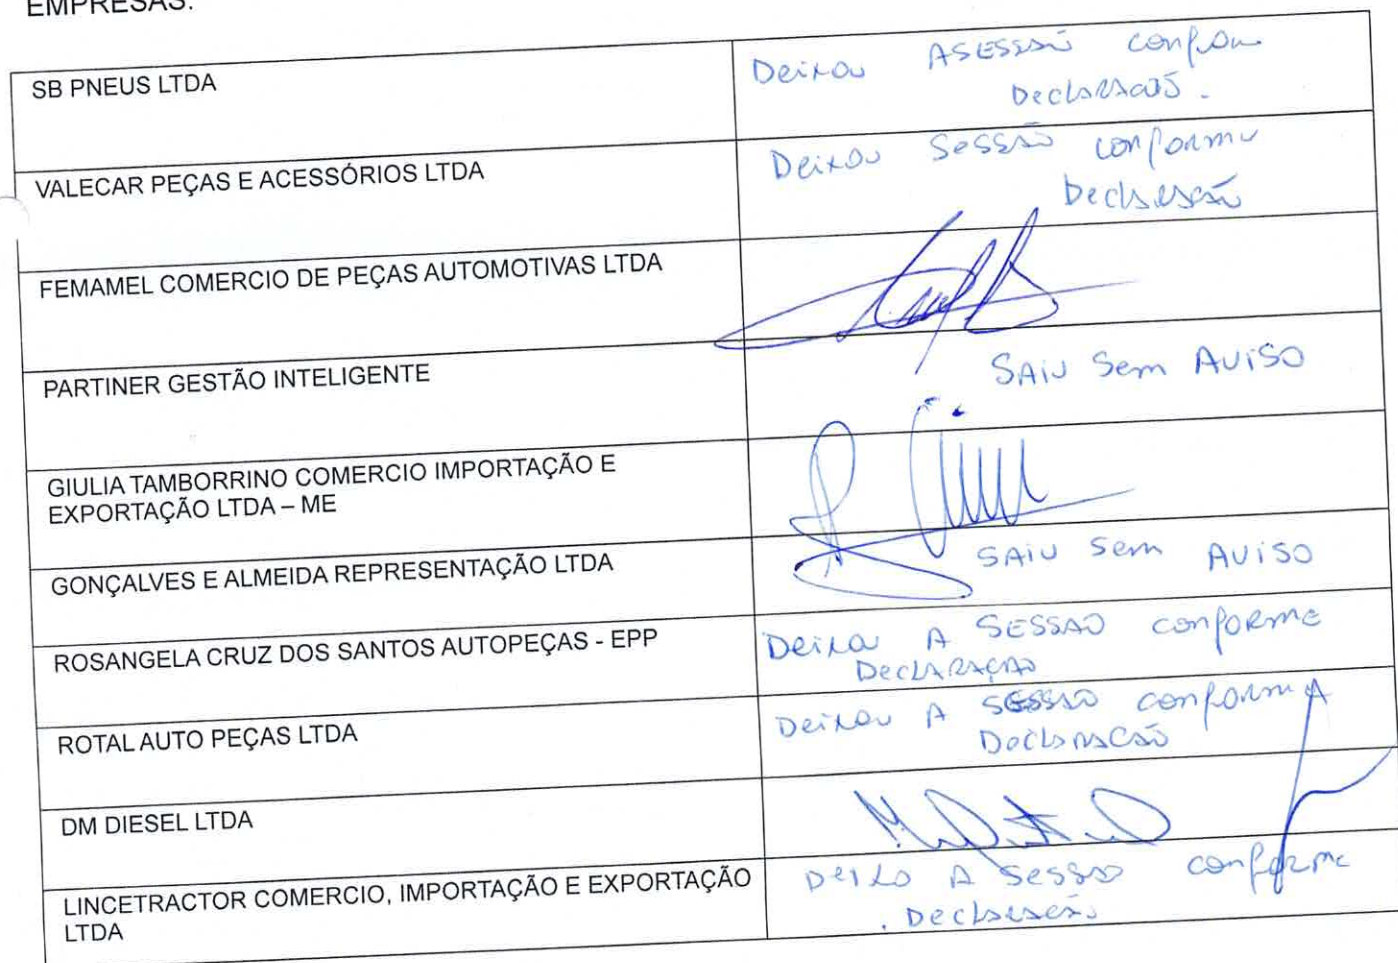 EMPRESAS:
SB PNEUS LTDA
Deixou ASESSSÃO confor
Declaração.
VALECAR PEÇAS E ACESSÓRIOS LTDA
Deixou Sessão conforme
Declaração
FEMAMEL COMERCIO DE PEÇAS AUTOMOTIVAS LTDA
PARTINER GESTÃO INTELIGENTE
SAiu Sem AViSO
GIULIA TAMBORRINO COMERCIO IMPORTAÇÃO E
EXPORTAÇÃO LTDA – ME
GONÇALVES E ALMEIDA REPRESENTAÇÃO LTDA
SAiu Sem AViSO
ROSANGELA CRUZ DOS SANTOS AUTOPEÇAS - EPP
Deixou A SESSAO conforme
DeclaRAçAO
ROTAL AUTO PEÇAS LTDA
Deixou A SESSAO conforme
Declaração
DM DIESEL LTDA
LINCETRACTOR COMERCIO, IMPORTAÇÃO E EXPORTAÇÃO
LTDA
Deixo A Sessao conforme
. Declaração